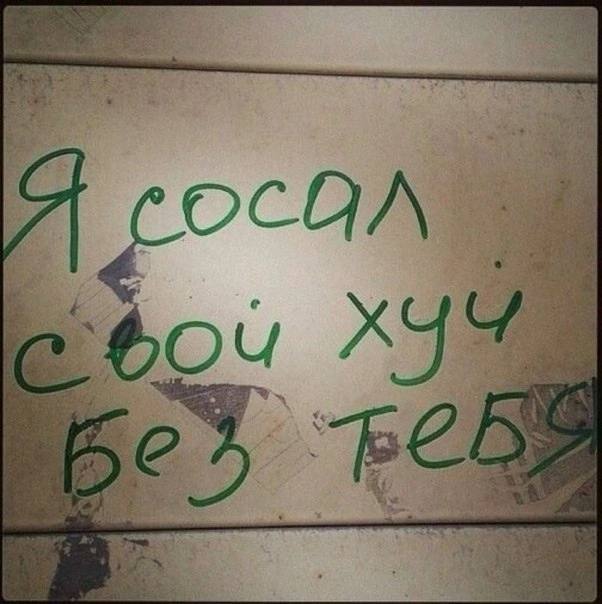 Я сосал
свой хуй
без тебя